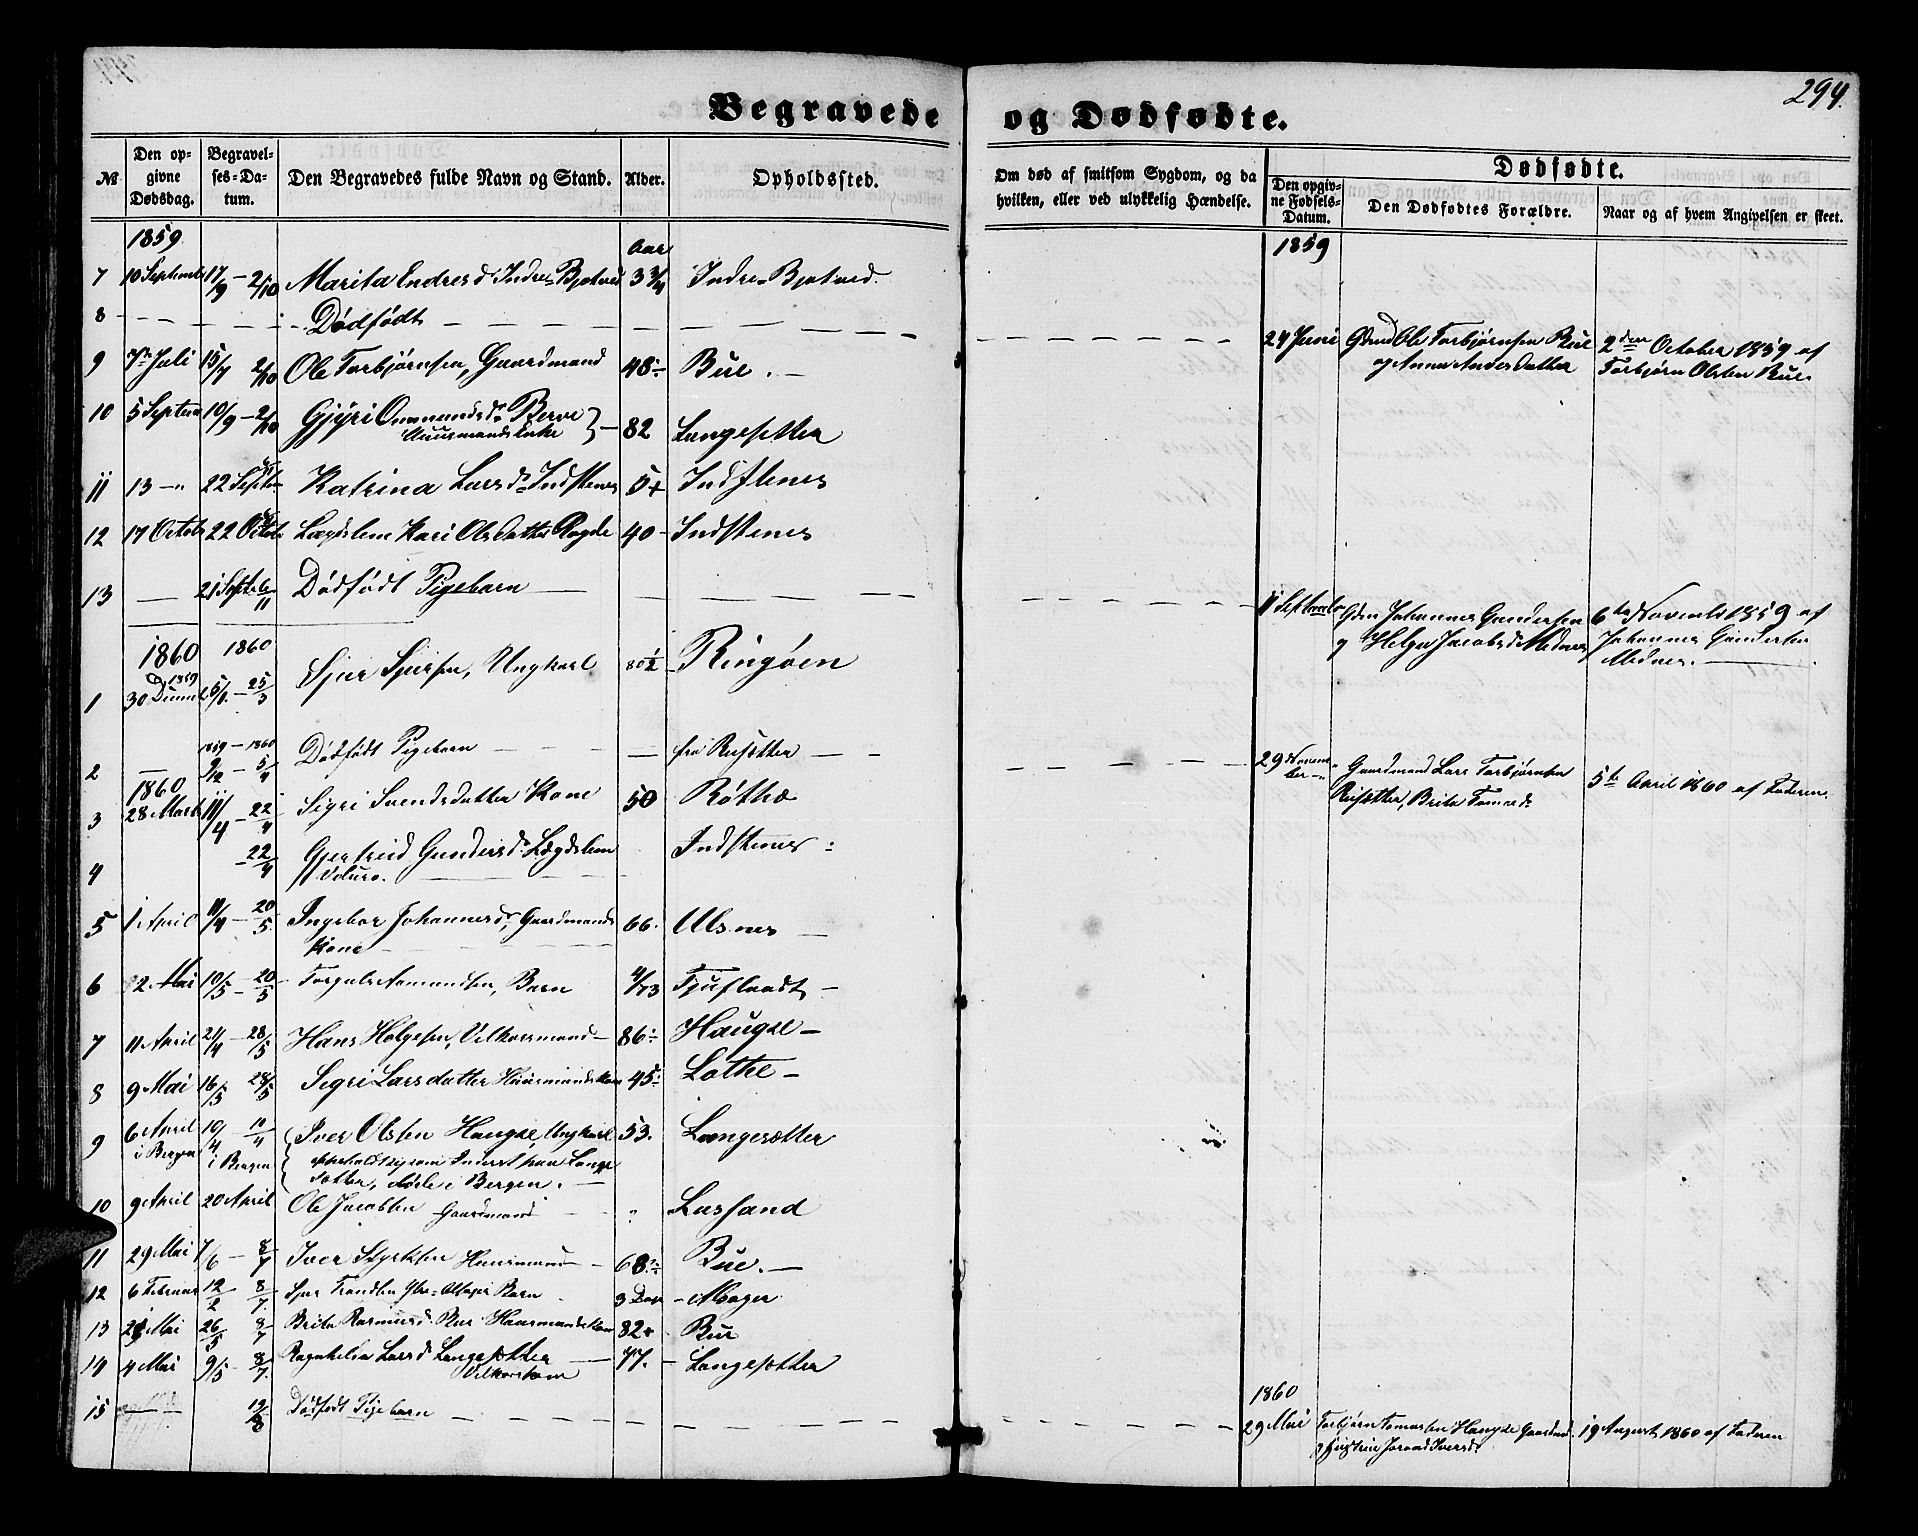 294.
Begravede og Dødfødte.
№ Den opgivne Dødsdag. Begravelses-Datum. Den Begravedes fulde Navn og Stand. Alder. Opholdssted. Om død af smitsom Sygdom, og da hvilken, eller ved ulykkelig Hændelse. Dødfødte.
Den opgivne Fødsels-Datum. Den Dødfødtes Forældre. Naar og af hvem Angivelsen er skeet.
1859 Aar 1859
7 10 Septembr 17/9 – 2/10 Marita Endresd Indre Bjotved 3 3/4 Indre Bjotved.
8 Dødfødt 24 Juni Ole Torbjørnsen Bue 2den October 1859 af
og Anna Andersdatter Torbjørn Olsen Bue
9 7de Juli 15/7 2/10 Ole Torbjørnsen, Gaardmand 48 Bue.
10 5 Septem 10/9 – 2/10 Gjyri Omundsd Berve 82 Langesetter
Huusmands Enke
11 13 – " 22 Septbr Katrina Larsd Indstenes 5 Indstenes
12 17 Octob 22 Octob Lægdslem Kari Olsdatter Ragde 40 Indstenes
13 21 Septb 6/11 Dødfødt Pigebarn 11 Septembr Johannes Gundersen 6te Novemb 1859 af
og Helga Jacobsd Mednes Johannes Gundersen
Mednes.
1860 1860
1 30 Decemb 1859 5/1 – 25/3 Sjur Sjursen, Ungkarl 80 1/2 Ringøen
2 1859 – 1860 9/12 – 5/4 Dødfødt Pigebarn fra Reisetter 29 November Gaardmand Lars Torbjørnsen 5te April 1860 af Faderen.
Reisetter, Brita Tomasd
1860
3 28 Marts 11/4 – 22/4 Sigri Svendsdatter Kone 50 Røthe
4 22/4 Gjertrud Gundersd Lægdslem Indstenes
5 1 April 11/4 – 20/5 Ingebor Johannesd, Gaardmands 66. Ulsnes
Kone
6 2 Mai 10/5 – 20/5 Torguls Aamundsen, Barn 4/73 Tjoflaadt
7 11 April 21/4 – 28/5 Hans Helgesen, Vilkaarsmand 86 Haugse
8 9 Mai 16/5 28/5 Sigri Larsdatter Huusmandskone 45 Lothe
9 6 April 10/4 – 10/4 Iver Olsen Haugse, Ungkarl 53. Langesetter
i Bergen i Bergen
døde i Bergen.
10 9 April 20 April Ole Jacobsen Gaardmand " Lussand
11 29 Mai 7/6 – 8/7 Iver Styrksen Huusmand 68 Bue.
12 6 Februar 12/2 8/7 Sjur Trondsen Alsager Barn 3 Dage Alsager
13 21 Mai 26/5 8/7 Brita Rasmusd Bue Huusmandskone 82 Bue
14 4 Mai 9/5 8/7. Ragnhilda Larsd Langesetter 77. Langesetter
Vilkaarskone
15 19/8 Dødfødt Pigebarn 1860
29 Mai Torbjørn Tomassen Haugse Gaardmd. 19 August 1860 af Faderen
Iversd